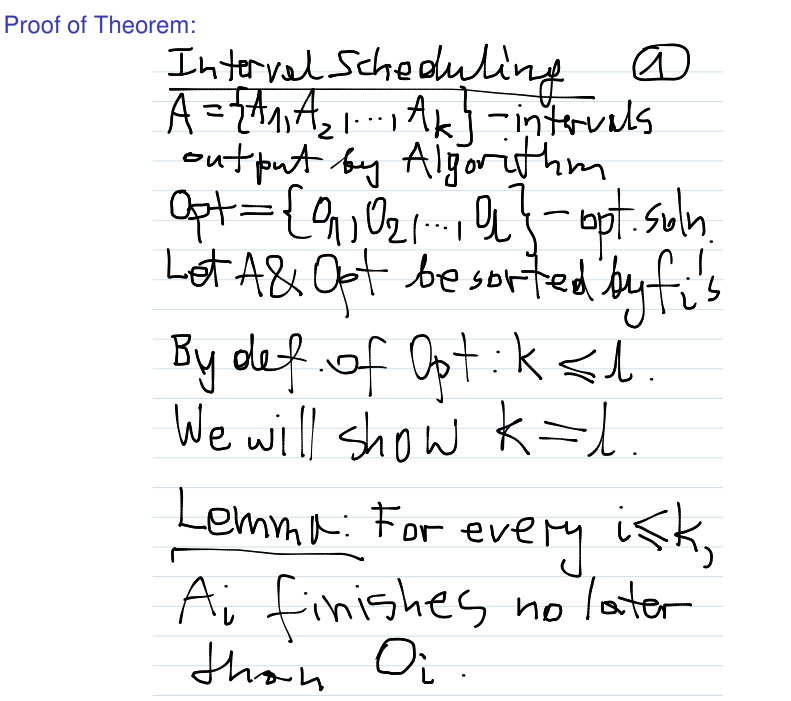 Proof of Theorem:
Interval Scheduling ①
A = {A₁, A₂, ..., Aₖ} - intervals
output by Algorithm
Opt = {O₁, O₂, ..., Oₗ} - opt. soln.
Let A & Opt be sorted by fᵢ's
By def. of Opt: k ≤ l.
We will show k = l.
Lemma: For every i ≤ k,
Aᵢ finishes no later
than Oᵢ.